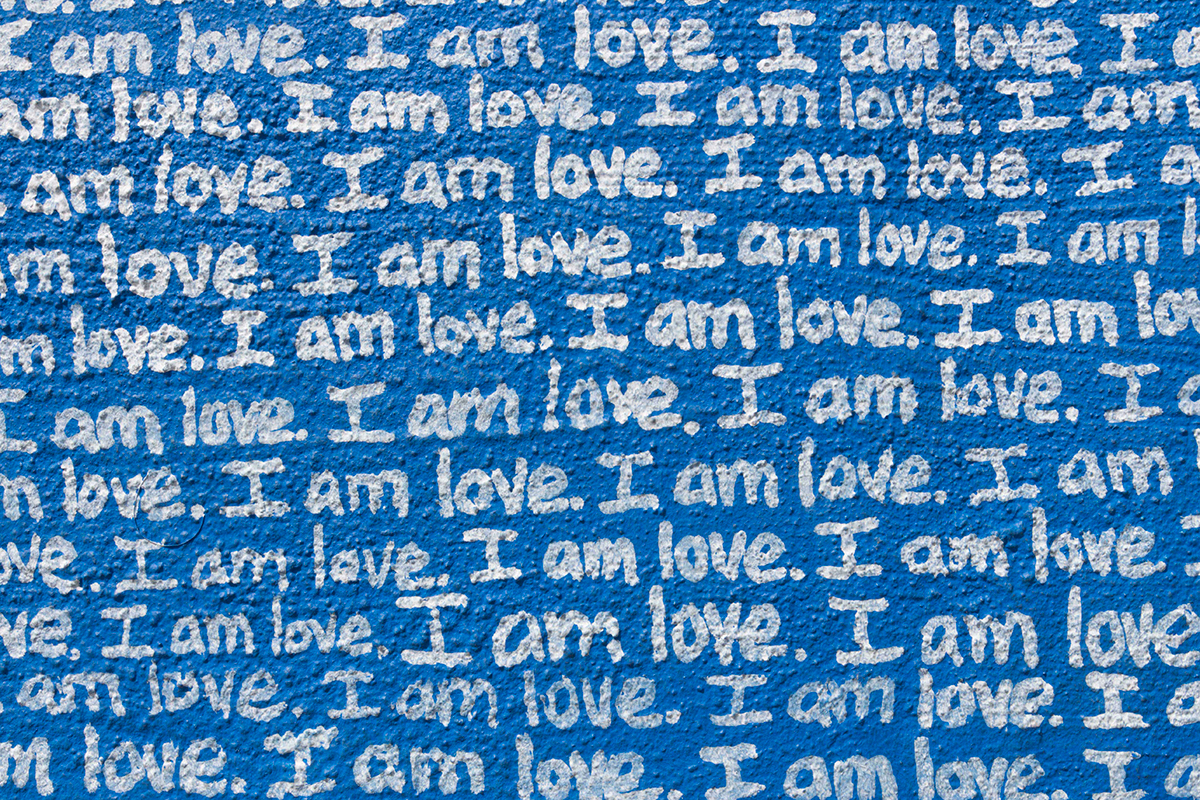 I am love. I am love. I am love I
am love. I am love. I am love. I am
am love. I am love. I am love. I a
am love. I am love. I am love. I am l
m love. I am love. I am love. I am lo
I am love. I am love. I am love. I
m love. I am love. I am love. I am
ove. I am love. I am love. I am love.
ve. I am love. I am love. I am love
am love. I am love. I am love. I a
m love. I am love. I am love. I a